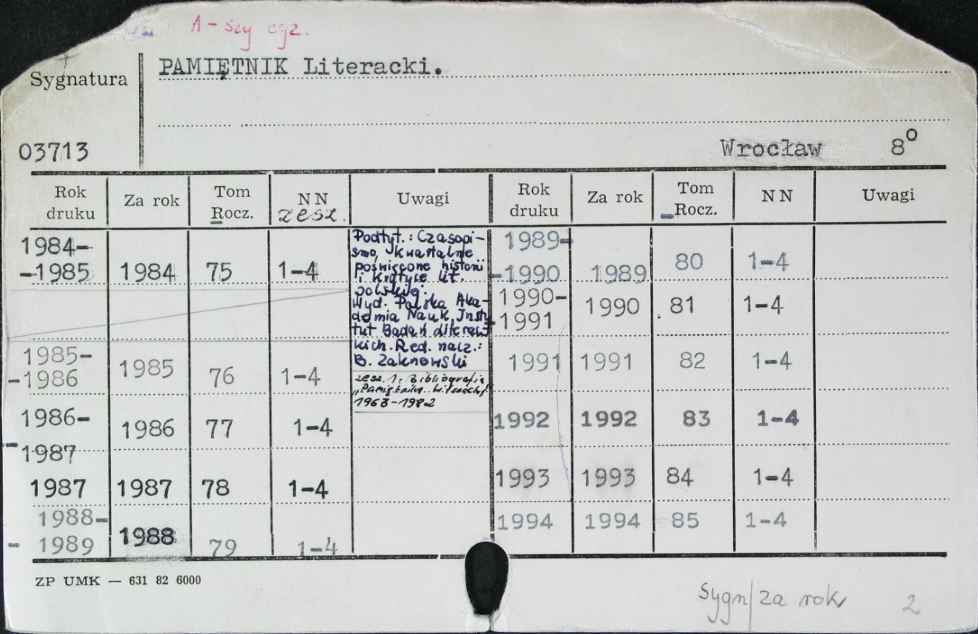 A-szy egz.
Sygnatura
PAMIĘTNIK Literacki.
03713
Wrocław 8°
Rok druku Za rok Tom Rocz. NN zesz. Uwagi Rok druku Za rok Tom Rocz. NN Uwagi
1984-
-1985 1984 75 1-4
1985-
-1986 1985 76 1-4
1986-
-1987 1986 77 1-4
1987 1987 78 1-4
1988-
-1989 1988 79 1-4
Podtyt.: Czasopi-
smo kwartalne
poświęcone historii
i krytyce lit.
polskiej.
Wyd. Polska Aka-
demia Nauk, Insty
tut Badań literac
kich. Red. nacz.:
B. Zakrzewski
zesz. 1: Bibliografia
"Pamiętnika Literack."
1963-1982
1989-
-1990 1989 80 1-4
1990-
-1991 1990 81 1-4
1991 1991 82 1-4
1992 1992 83 1-4
1993 1993 84 1-4
1994 1994 85 1-4
ZP UMK — 631 82 6000
Sygn/za rok 2